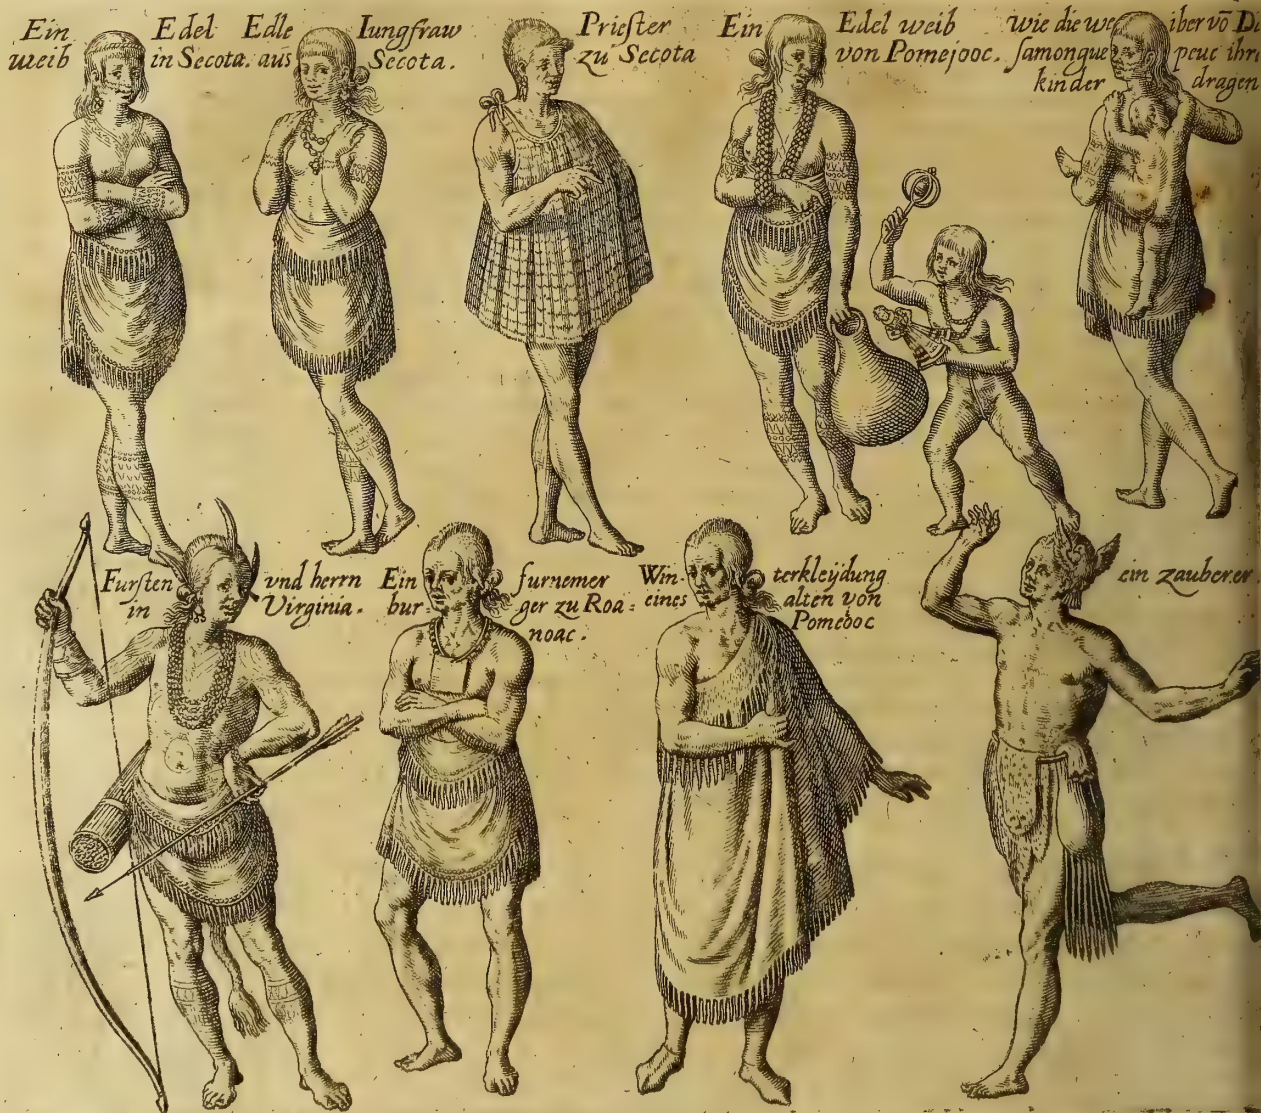 Ein Edel
weib in Secota.
Edle Iungfraw
aus Secota.
Priester
zu Secota
Ein Edel weib
von Pomejooc.
wie die we iber võ
samongue peuc ihre
kinder dragen
Fursten vnd herrn
in Virginia.
Ein furnemer
bur= ger zu Roa=
noac.
Win= terkleÿdung
eines alten von
Pomeooc
ein zauberer.